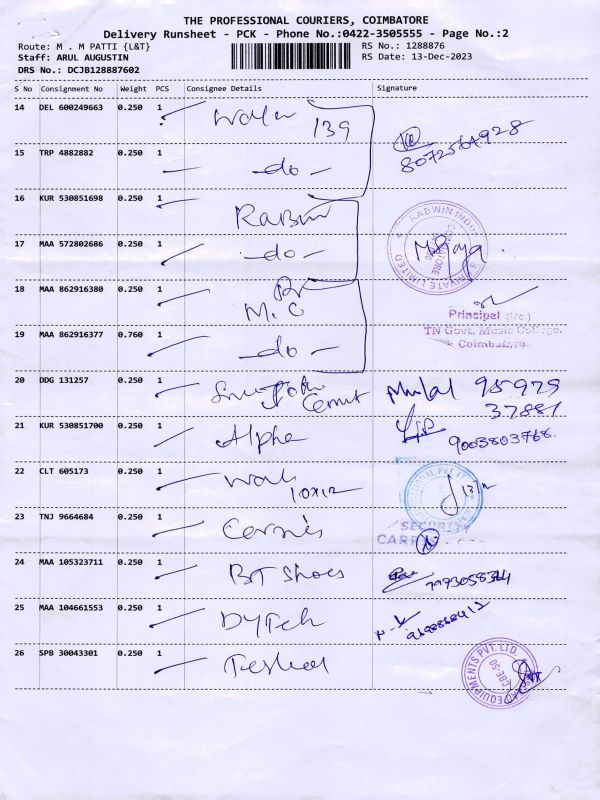 THE PROFESSIONAL COURIERS, COIMBATORE
Delivery Runsheet - PCK - Phone No.:0422-3505555 - Page No.:2
Route: M . M PATTI {L&T}
RS No.: 1288876
Staff: ARUL AUGUSTIN
RS Date: 13-Dec-2023
DRS No.: DCJB128887602
S No Consignment No Weight PCS Consignee Details Signature
14 DEL 600249663 0.250 1
139
8072564928
15 TRP 4882882 0.250 1 -do-
16 KUR 530851698 0.250 1
RABWIN INDU
PRIVATE LIMITED
17 MAA 572802686 0.250 1 -do-
18 MAA 862916380 0.250 1 M.C
Principal (i/c)
TN Govt. Music College,
Coimbatore.
19 MAA 862916377 0.760 1 -do-
20 DDG 131257 0.250 1
95979
37881
21 KUR 530851700 0.250 1 Alpha
9003803768
22 CLT 605173 0.250 1
10x12
SECURITY
23 TNJ 9664684 0.250 1
24 MAA 105323711 0.250 1 BT Shoes
25 MAA 104661553 0.250 1 DyTech
26 SPB 30043301 0.250 1
EQUIPMENTS PVT. LTD
CBE-50